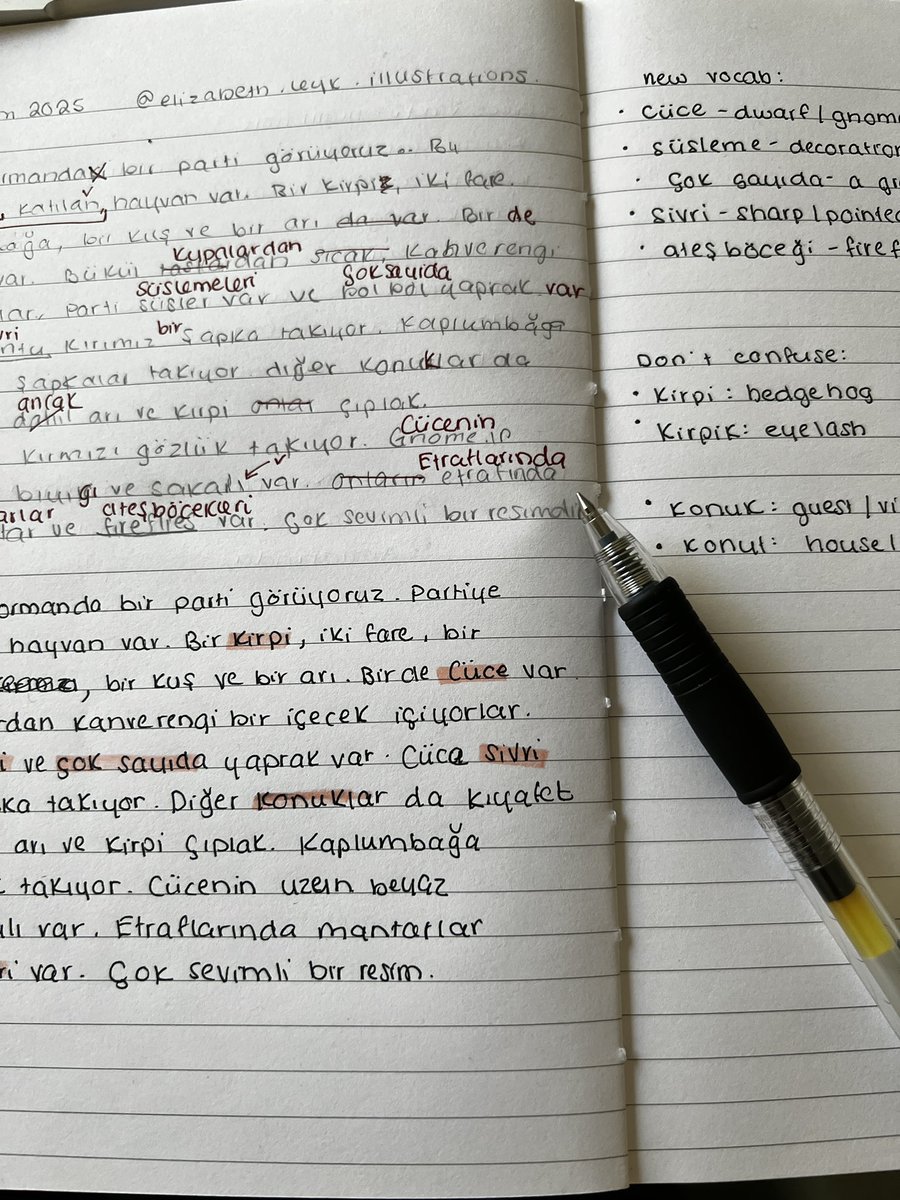 2025 @elizabeth.leyk.illustrations.
bir parti görüyoruz. Bu
katılan, hayvan var. Bir kirpi, iki fare.
bir kuş ve bir arı da var. Bir de
kupalardan
var. sıcak, kahverengi
süslemeleri çok sayıda
parti süsler var ve bol bol yaprak var
bir
şapka takıyor. Kaplumbağa
şapkalar takıyor diğer konuklar da
ancak
arı ve kirpi onlar çıplak.
Cücenin
kırmızı gözlük takıyor. Gnome'in
Etraflarında
bıyığı ve sakalı var. onların etrafında
ateşböcekleri
ve fireflies var. Çok sevimli bir resimdir
ormanda bir parti görüyoruz. Partiye
hayvan var. Bir kirpi, iki fare, bir
, bir kuş ve bir arı. Bir de Cüce var.
kahverengi bir içecek içiyorlar.
ve çok sayıda yaprak var. Cüce sivri
takıyor. Diğer konuklar da kıyafet
arı ve kirpi çıplak. Kaplumbağa
takıyor. Cücenin uzun beyaz
var. Etraflarında mantarlar
var. Çok sevimli bir resim.
new vocab:
• cüce - dwarf / gnome
• süsleme - decoration
• çok sayıda - a
• sivri - sharp / pointed
• ateş böceği -
Don't confuse:
• Kirpi: hedgehog
• Kirpik: eyelash
• Konuk: guest /
• Konut: